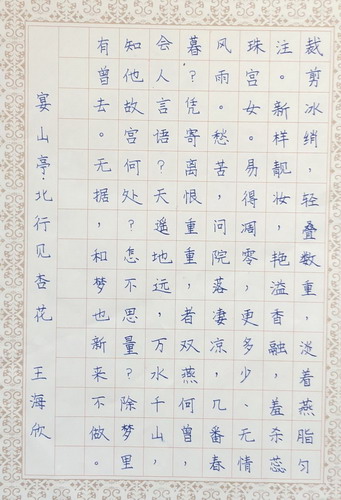 裁剪冰绡，轻叠数重，淡着燕脂匀
注。新样靓妆，艳溢香融，羞杀蕊
珠宫女。易得凋零，更多少、无情
风雨。愁苦，问院落凄凉，几番春
暮？凭寄离恨重重，者双燕，何曾
会人言语？天遥地远，万水千山，
知他故宫何处？怎不思量？除梦里
有曾去。无据，和梦也新来不做。
宴山亭·北行见杏花 王海欣